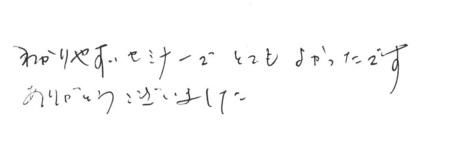 わかりやすいセミナーでとてもよかったです
ありがとうございました